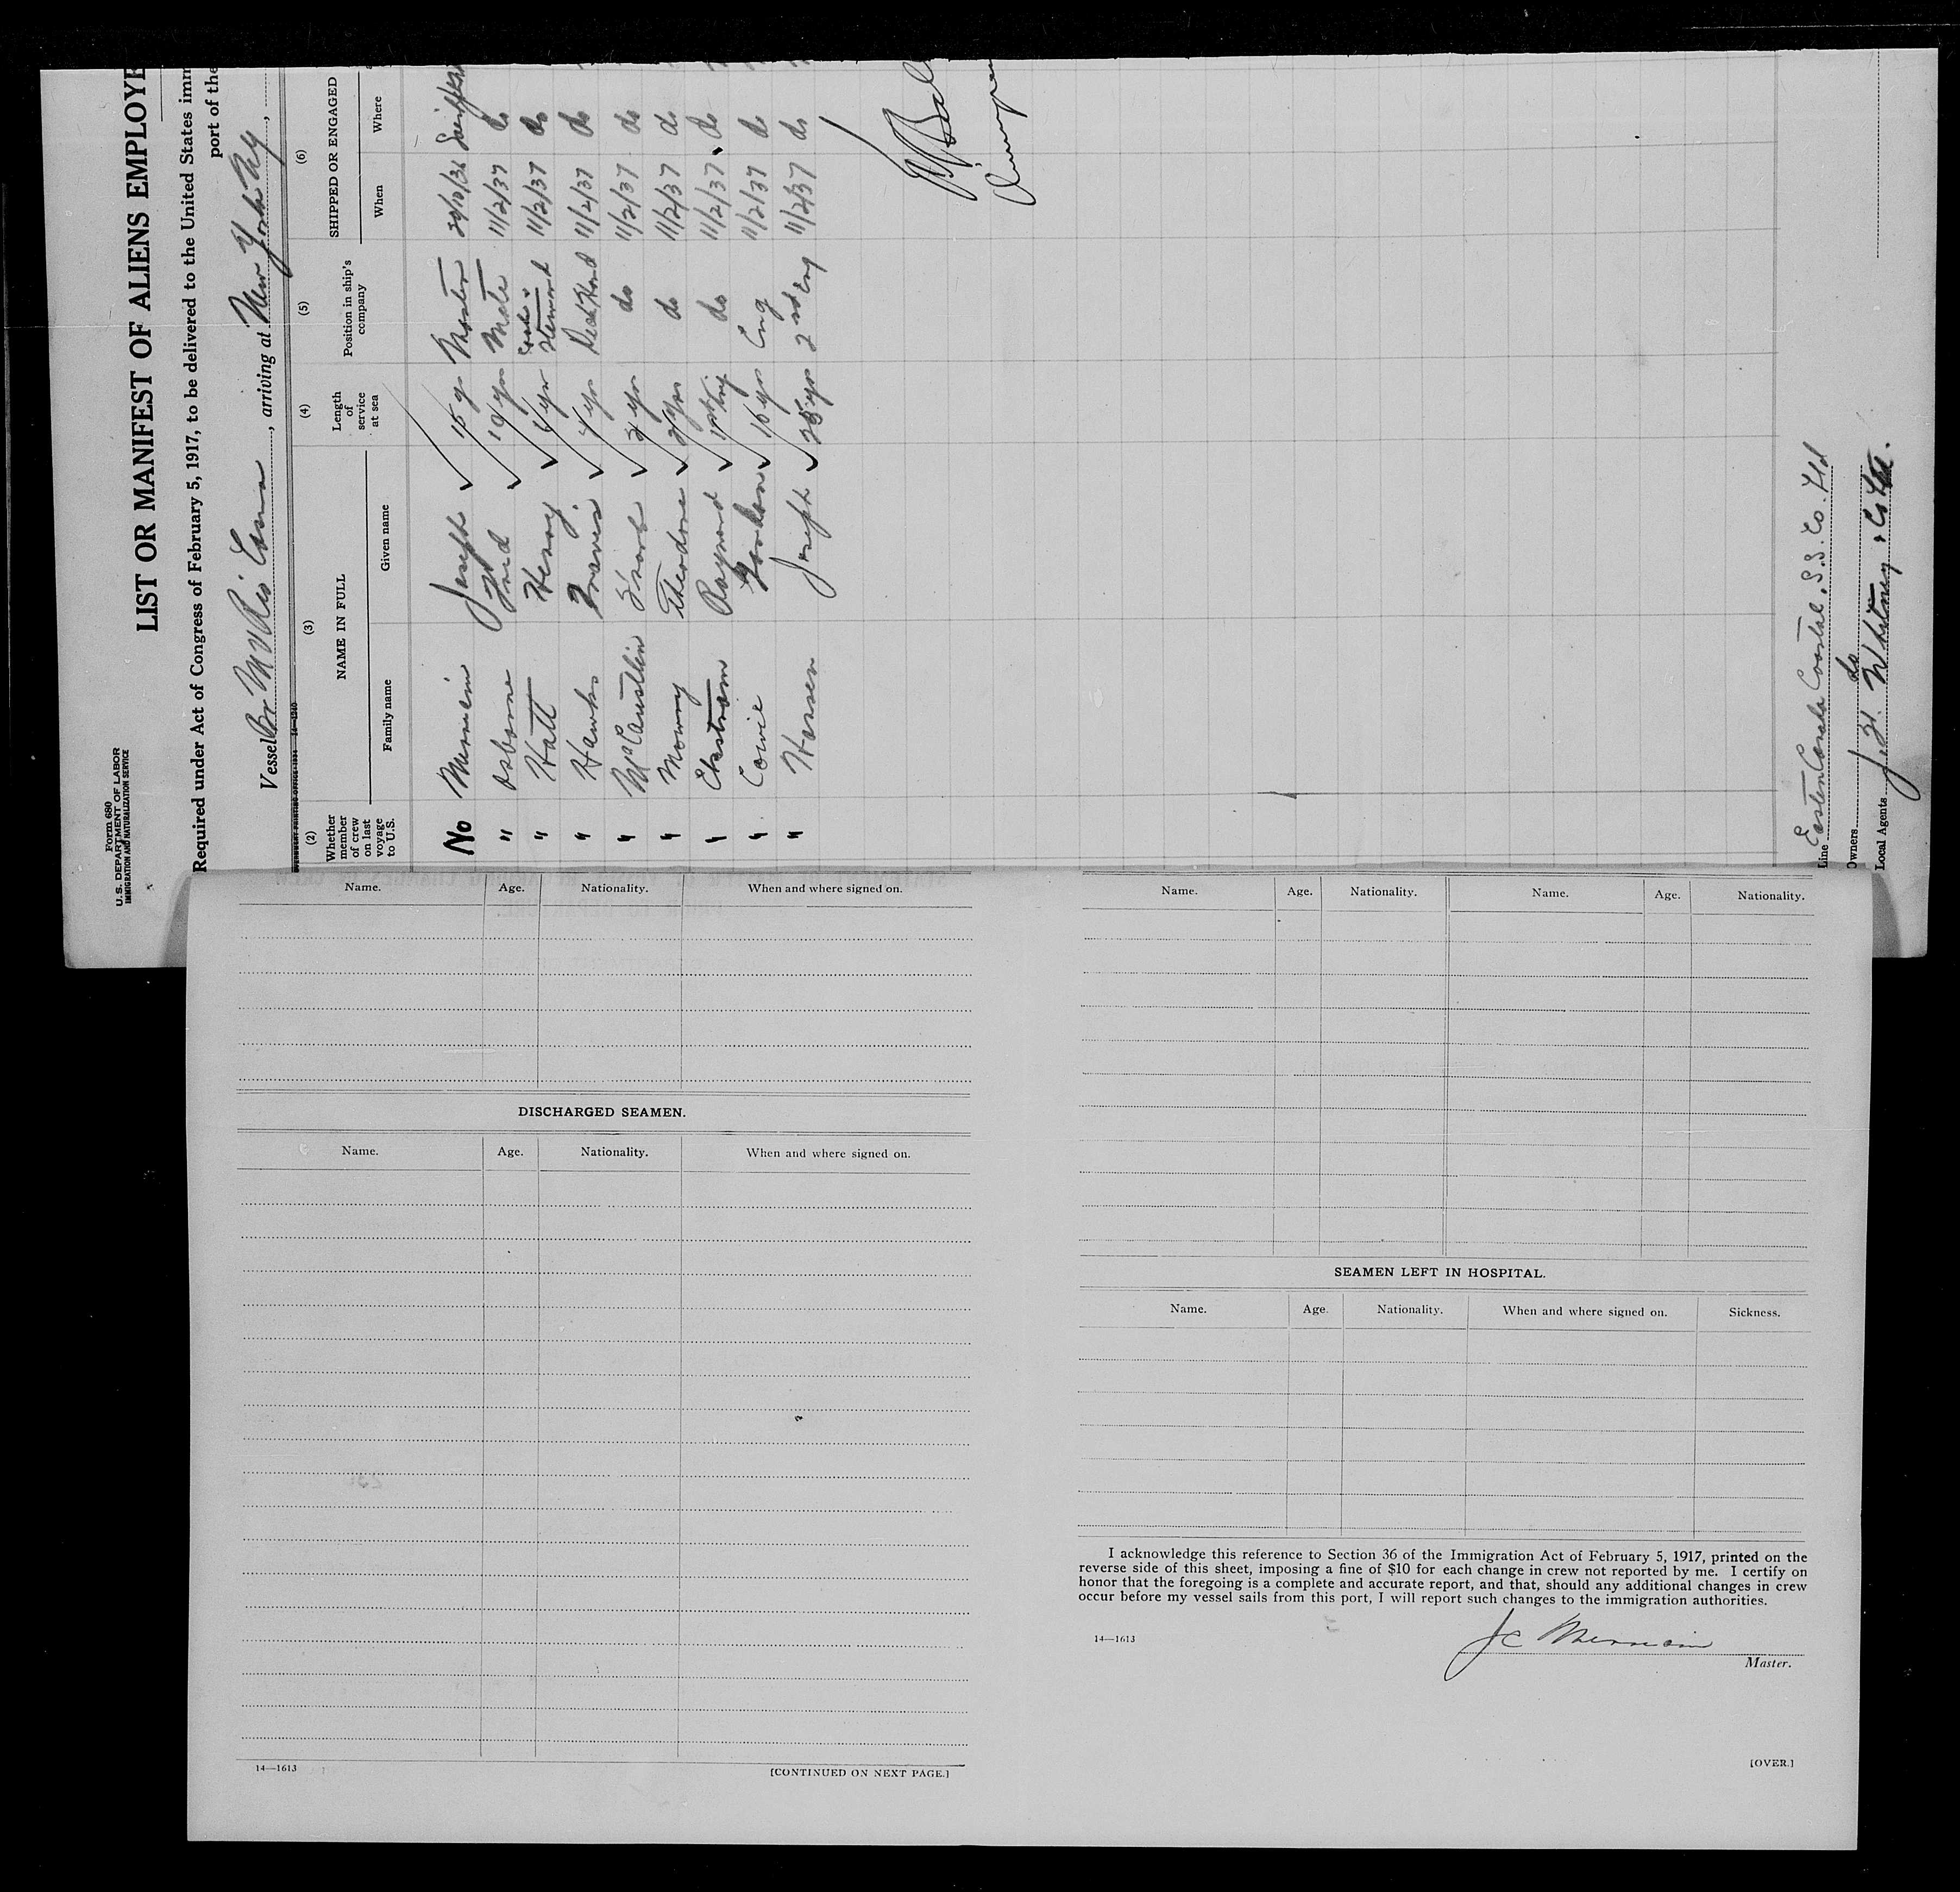 Form 680
U.S. DEPARTMENT OF LABOR
IMMIGRATION AND NATURALIZATION SERVICE
LIST OR MANIFEST OF ALIENS EMPLOYE
Required under Act of Congress of February 5, 1917, to be delivered to the United States imm
port of the
Vessel Br M V Rio Casma, arriving at New York NY,
(2) (3) (4) (5) (6)
Whether member of crew on last voyage to U.S. NAME IN FULL Length of service at sea Position in ship's company SHIPPED OR ENGAGED
Family name Given name When Where
No Joseph 15 yr Master
" Osborne Fred 19 yrs Mate 11/2/37 do
" Hatt Henry 6 yr Cook & Steward 11/2/37 do
" Hawks 4 yr Deck Hand 11/2/37 do
" McCaustlin Frank 2 yrs do 11/2/37 do
" Mowry Theodore do 11/2/37 do
" Ekstrom Raymond 1st trip do 11/2/37 do
" Gordon 16 yrs Eng 11/2/37 do
" Hansen Joseph 25 yrs 2nd Eng 11/2/37 do
Line Eastern Canada Coastal S.S. Co. Ltd
Owners do
Local Agents J. H. Whitney & Co Ltd.
Name. Age. Nationality. When and where signed on.
DISCHARGED SEAMEN.
Name. Age. Nationality. When and where signed on.
14—1613 [CONTINUED ON NEXT PAGE.]
Name. Age. Nationality. Name. Age. Nationality.
SEAMEN LEFT IN HOSPITAL.
Name. Age. Nationality. When and where signed on. Sickness.
I acknowledge this reference to Section 36 of the Immigration Act of February 5, 1917, printed on the
reverse side of this sheet, imposing a fine of $10 for each change in crew not reported by me. I certify on
honor that the foregoing is a complete and accurate report, and that, should any additional changes in crew
occur before my vessel sails from this port, I will report such changes to the immigration authorities.
14—1613
Master.
[OVER.]